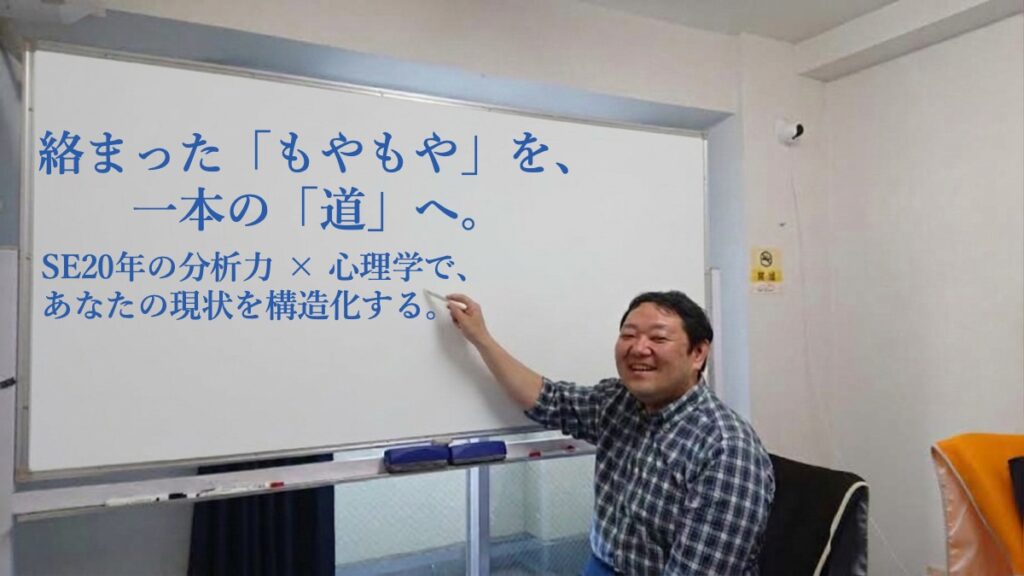 絡まった「もやもや」を、
一本の「道」へ。
SE20年の分析力 × 心理学で、
あなたの現状を構造化する。
禁煙